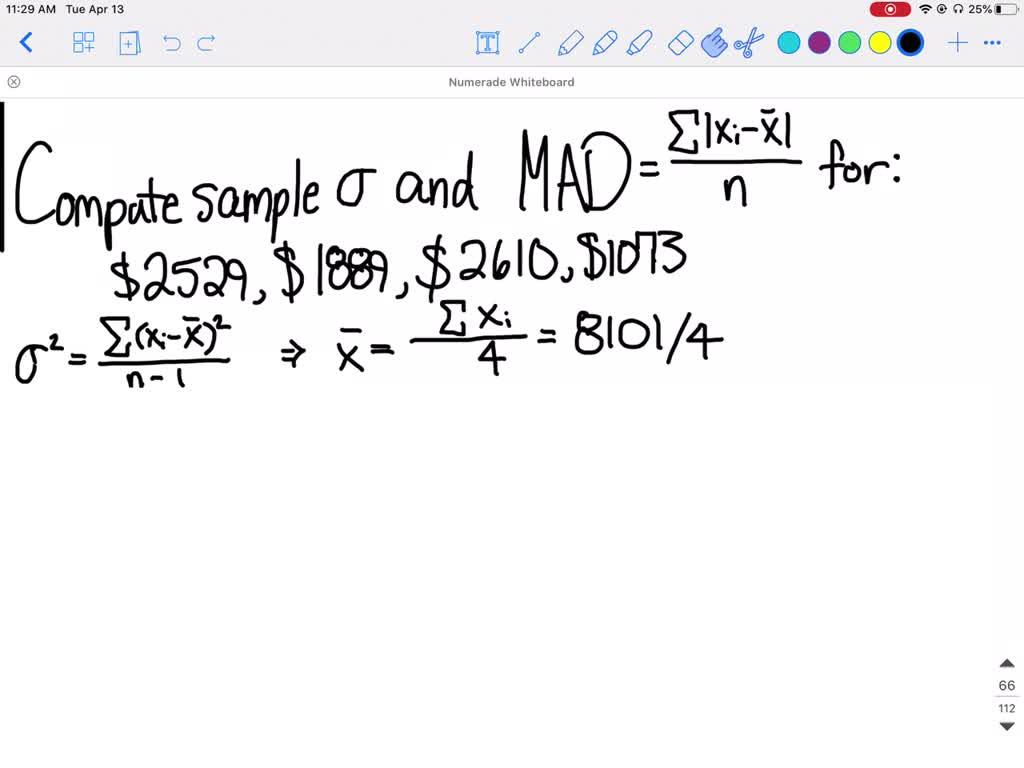 11:29 AM Tue Apr 13 25%
Numerade Whiteboard
Compute sample σ and MAD = Σ|xi-x̄| / n for:
$2529, $1889, $2610, $1073
σ² = Σ(xi-x̄)² / n-1 ⇒ x̄ = Σxi / 4 = 8101/4
66
112